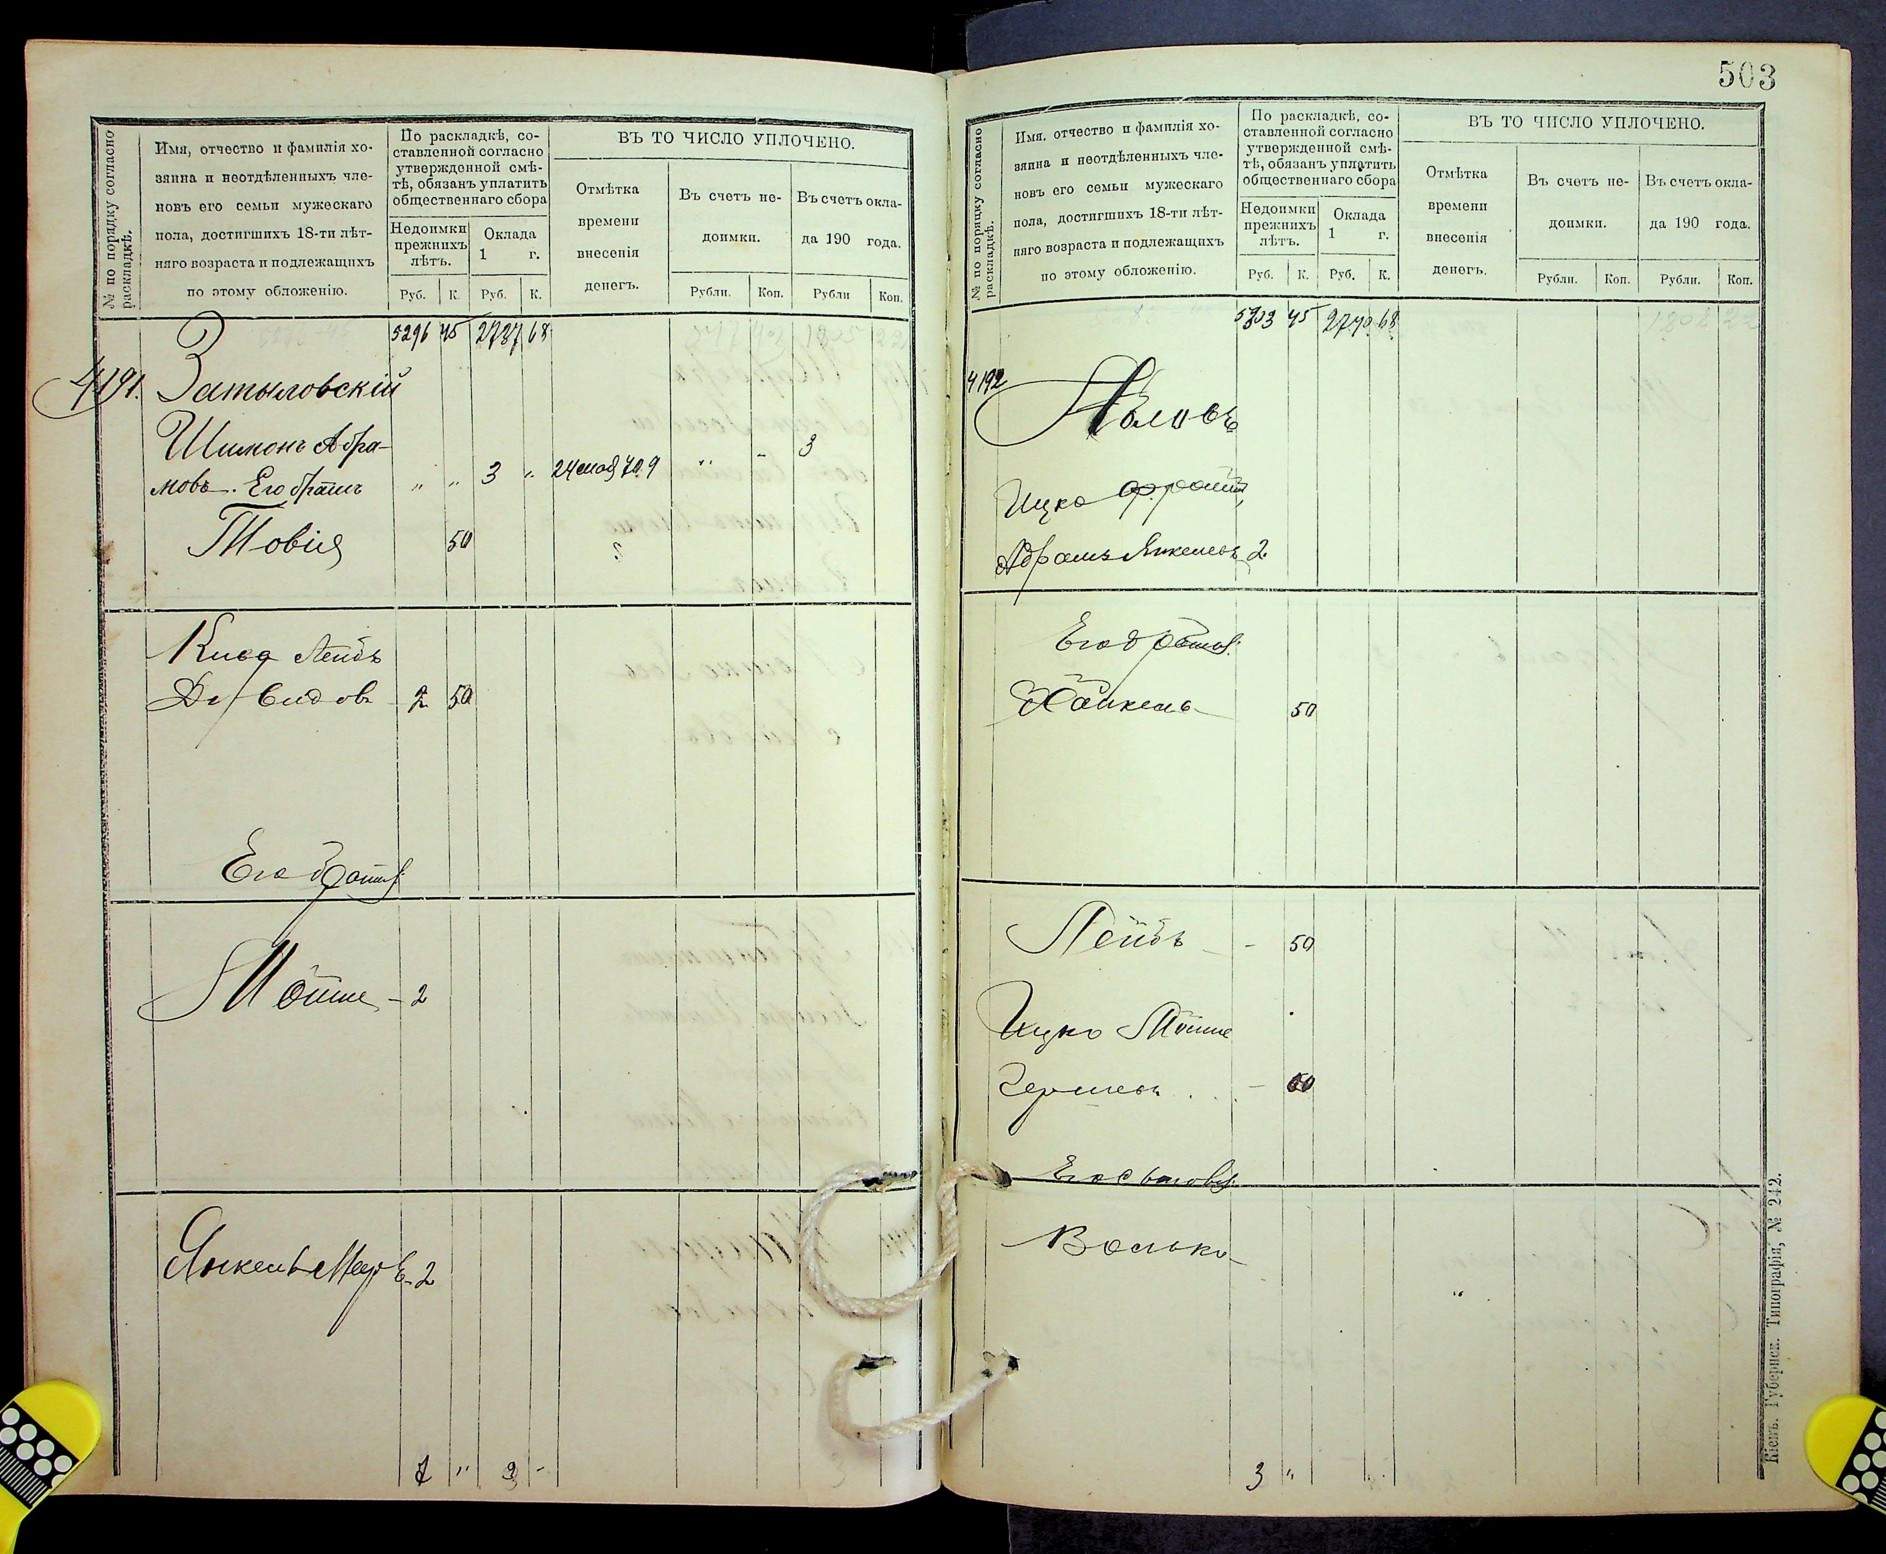 503
№ по порядку согласно раскладкѣ.
Имя, отчество и фамилія хо-
зяина и неотдѣленныхъ чле-
новъ его семьи мужескаго
пола, достигшихъ 18-ти лѣт-
няго возраста и подлежащихъ
по этому обложенію.
По раскладкѣ, со-
ставленной согласно
утвержденной смѣ-
тѣ, обязанъ уплатить
общественнаго сбора
Недоимки
прежнихъ
лѣтъ.
Оклада
1 г.
Руб. К. Руб. К.
ВЪ ТО ЧИСЛО УПЛОЧЕНО.
Отмѣтка
времени
внесенія
денегъ.
Въ счетъ не-
доимки.
Въ счетъ окла-
да 190 года.
Рубли. Коп. Рубли Коп.
5296 45 2737 68
4191. Затыловскій
Шимонъ Абра-
мовъ. Его братъ " " 3 " 24 " - 3
Товія 50
Кива Лейбъ
Давидовъ 2 50
Его братья:
Мошше - 2
Янкель Меер - 2
7 " 3 -
№ по порядку согласно раскладкѣ.
Имя, отчество и фамилія хо-
зяина и неотдѣленныхъ чле-
новъ его семьи мужескаго
пола, достигшихъ 18-ти лѣт-
няго возраста и подлежащихъ
по этому обложенію.
По раскладкѣ, со-
ставленной согласно
утвержденной смѣ-
тѣ, обязанъ уплатить
общественнаго сбора
Недоимки
прежнихъ
лѣтъ.
Оклада
1 г.
Руб. К. Руб. К.
ВЪ ТО ЧИСЛО УПЛОЧЕНО.
Отмѣтка
времени
внесенія
денегъ.
Въ счетъ не-
доимки.
Въ счетъ окла-
да 190 года.
Рубли. Коп. Рубли. Коп.
5303 45 2740 68
4192
Ицко
Абрамъ Янкелевъ 2
Его братья:
Хаикель 50
Лейбъ - 50
Ицко Мошше
Гершевъ - 50
Его сыновья:
Волько
3 "
Кіевъ. Губернск. Типографія, № 242.